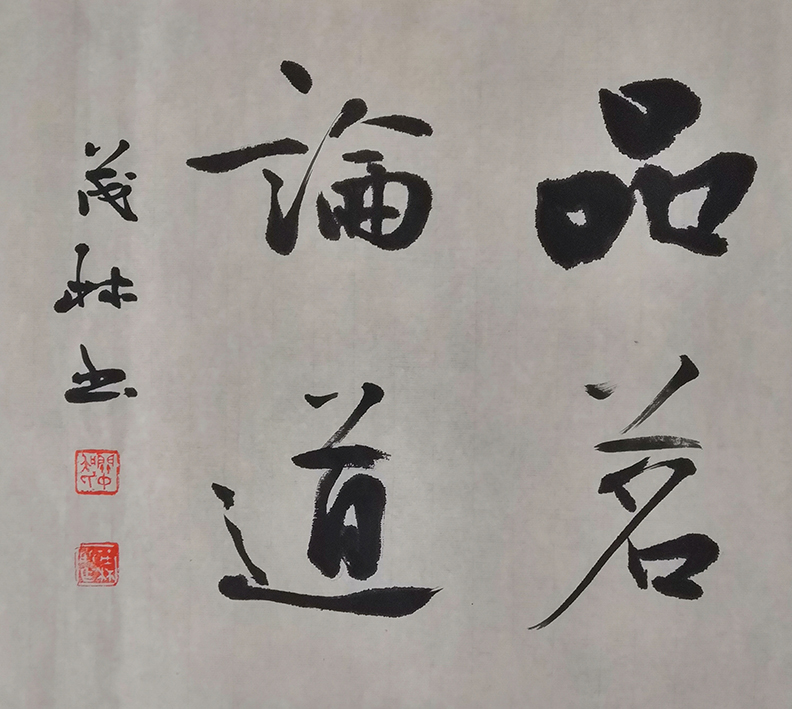 品茗
論道
茂林书